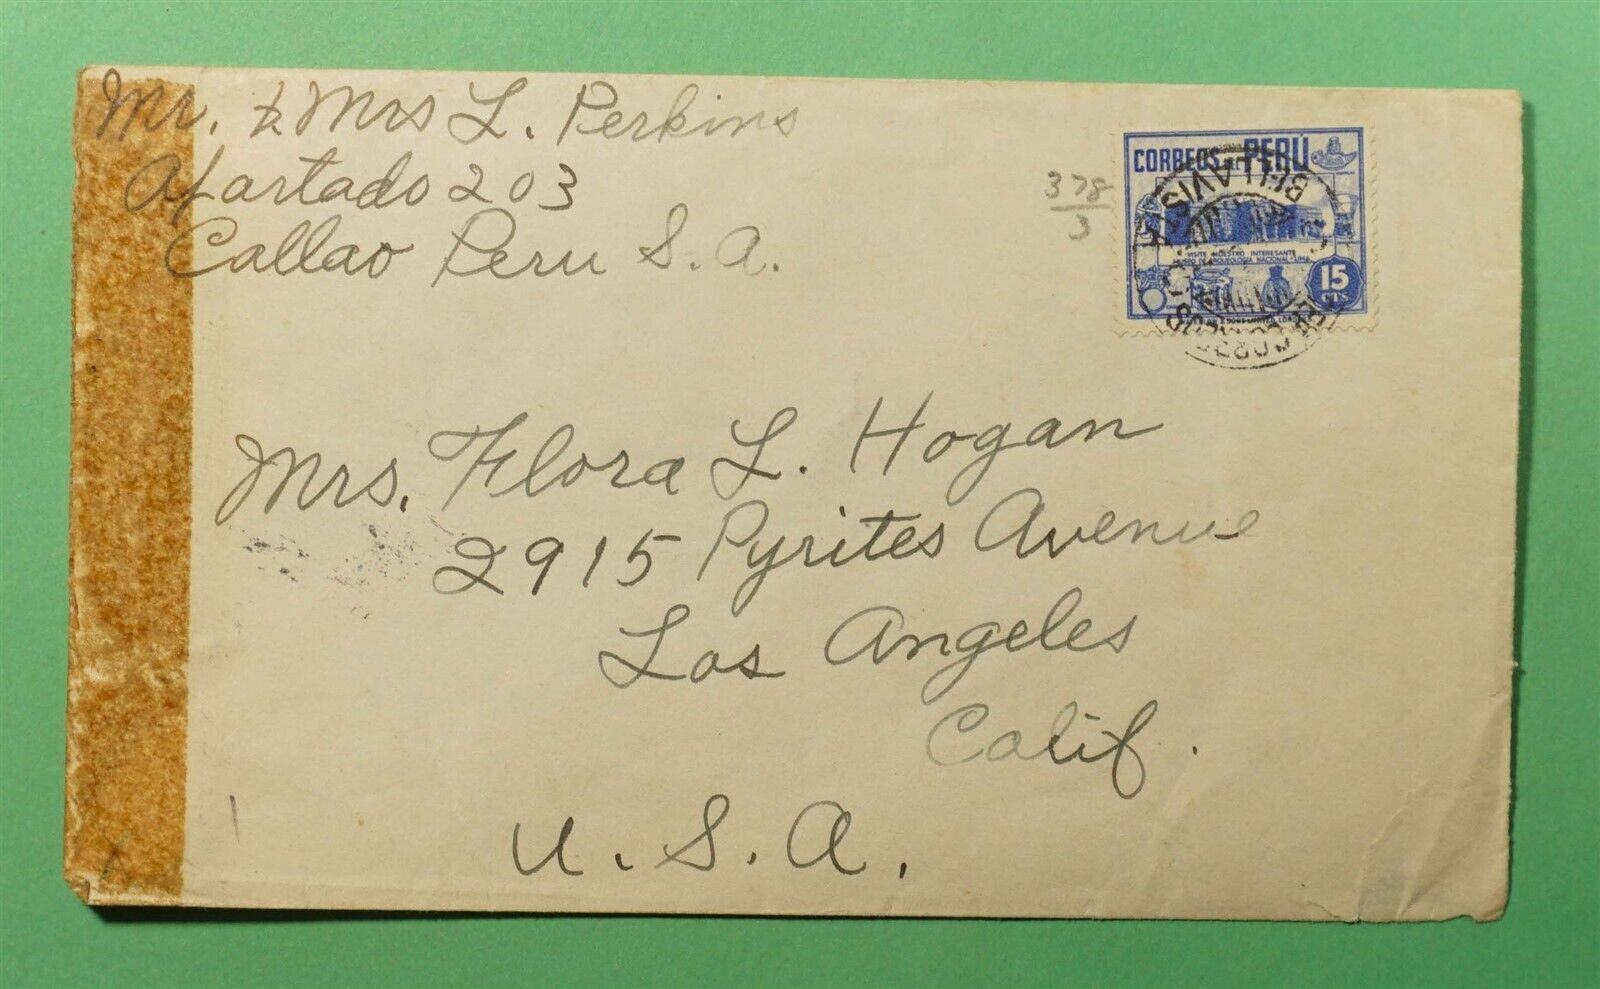 Mr. & Mrs L. Perkins
Apartado 203
Callao Peru S.A.
378
3
CORREOS DEL PERU
BELLAVISTA
VISITE NUESTRO INTERESANTE
MUSEO DE ARQUEOLOGIA NACIONAL-LIMA
15
CTS
Mrs. Flora L. Hogan
2915 Pyrites Avenue
Los Angeles
Calif.
U.S.A.